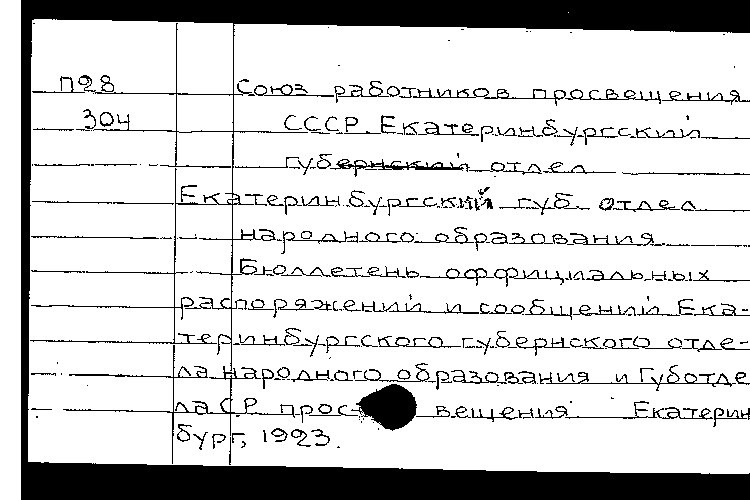 П28 Союз работников просвещения
304 СССР. Екатеринбургский
губернский отдел
Екатеринбургский губ. отдел
народного образования
Бюллетень оффициальных
распоряжений и сообщений Ека-
теринбургского губернского отде-
ла народного образования и Губотде
ла СР просвещения. Екатерин
бург, 1923.